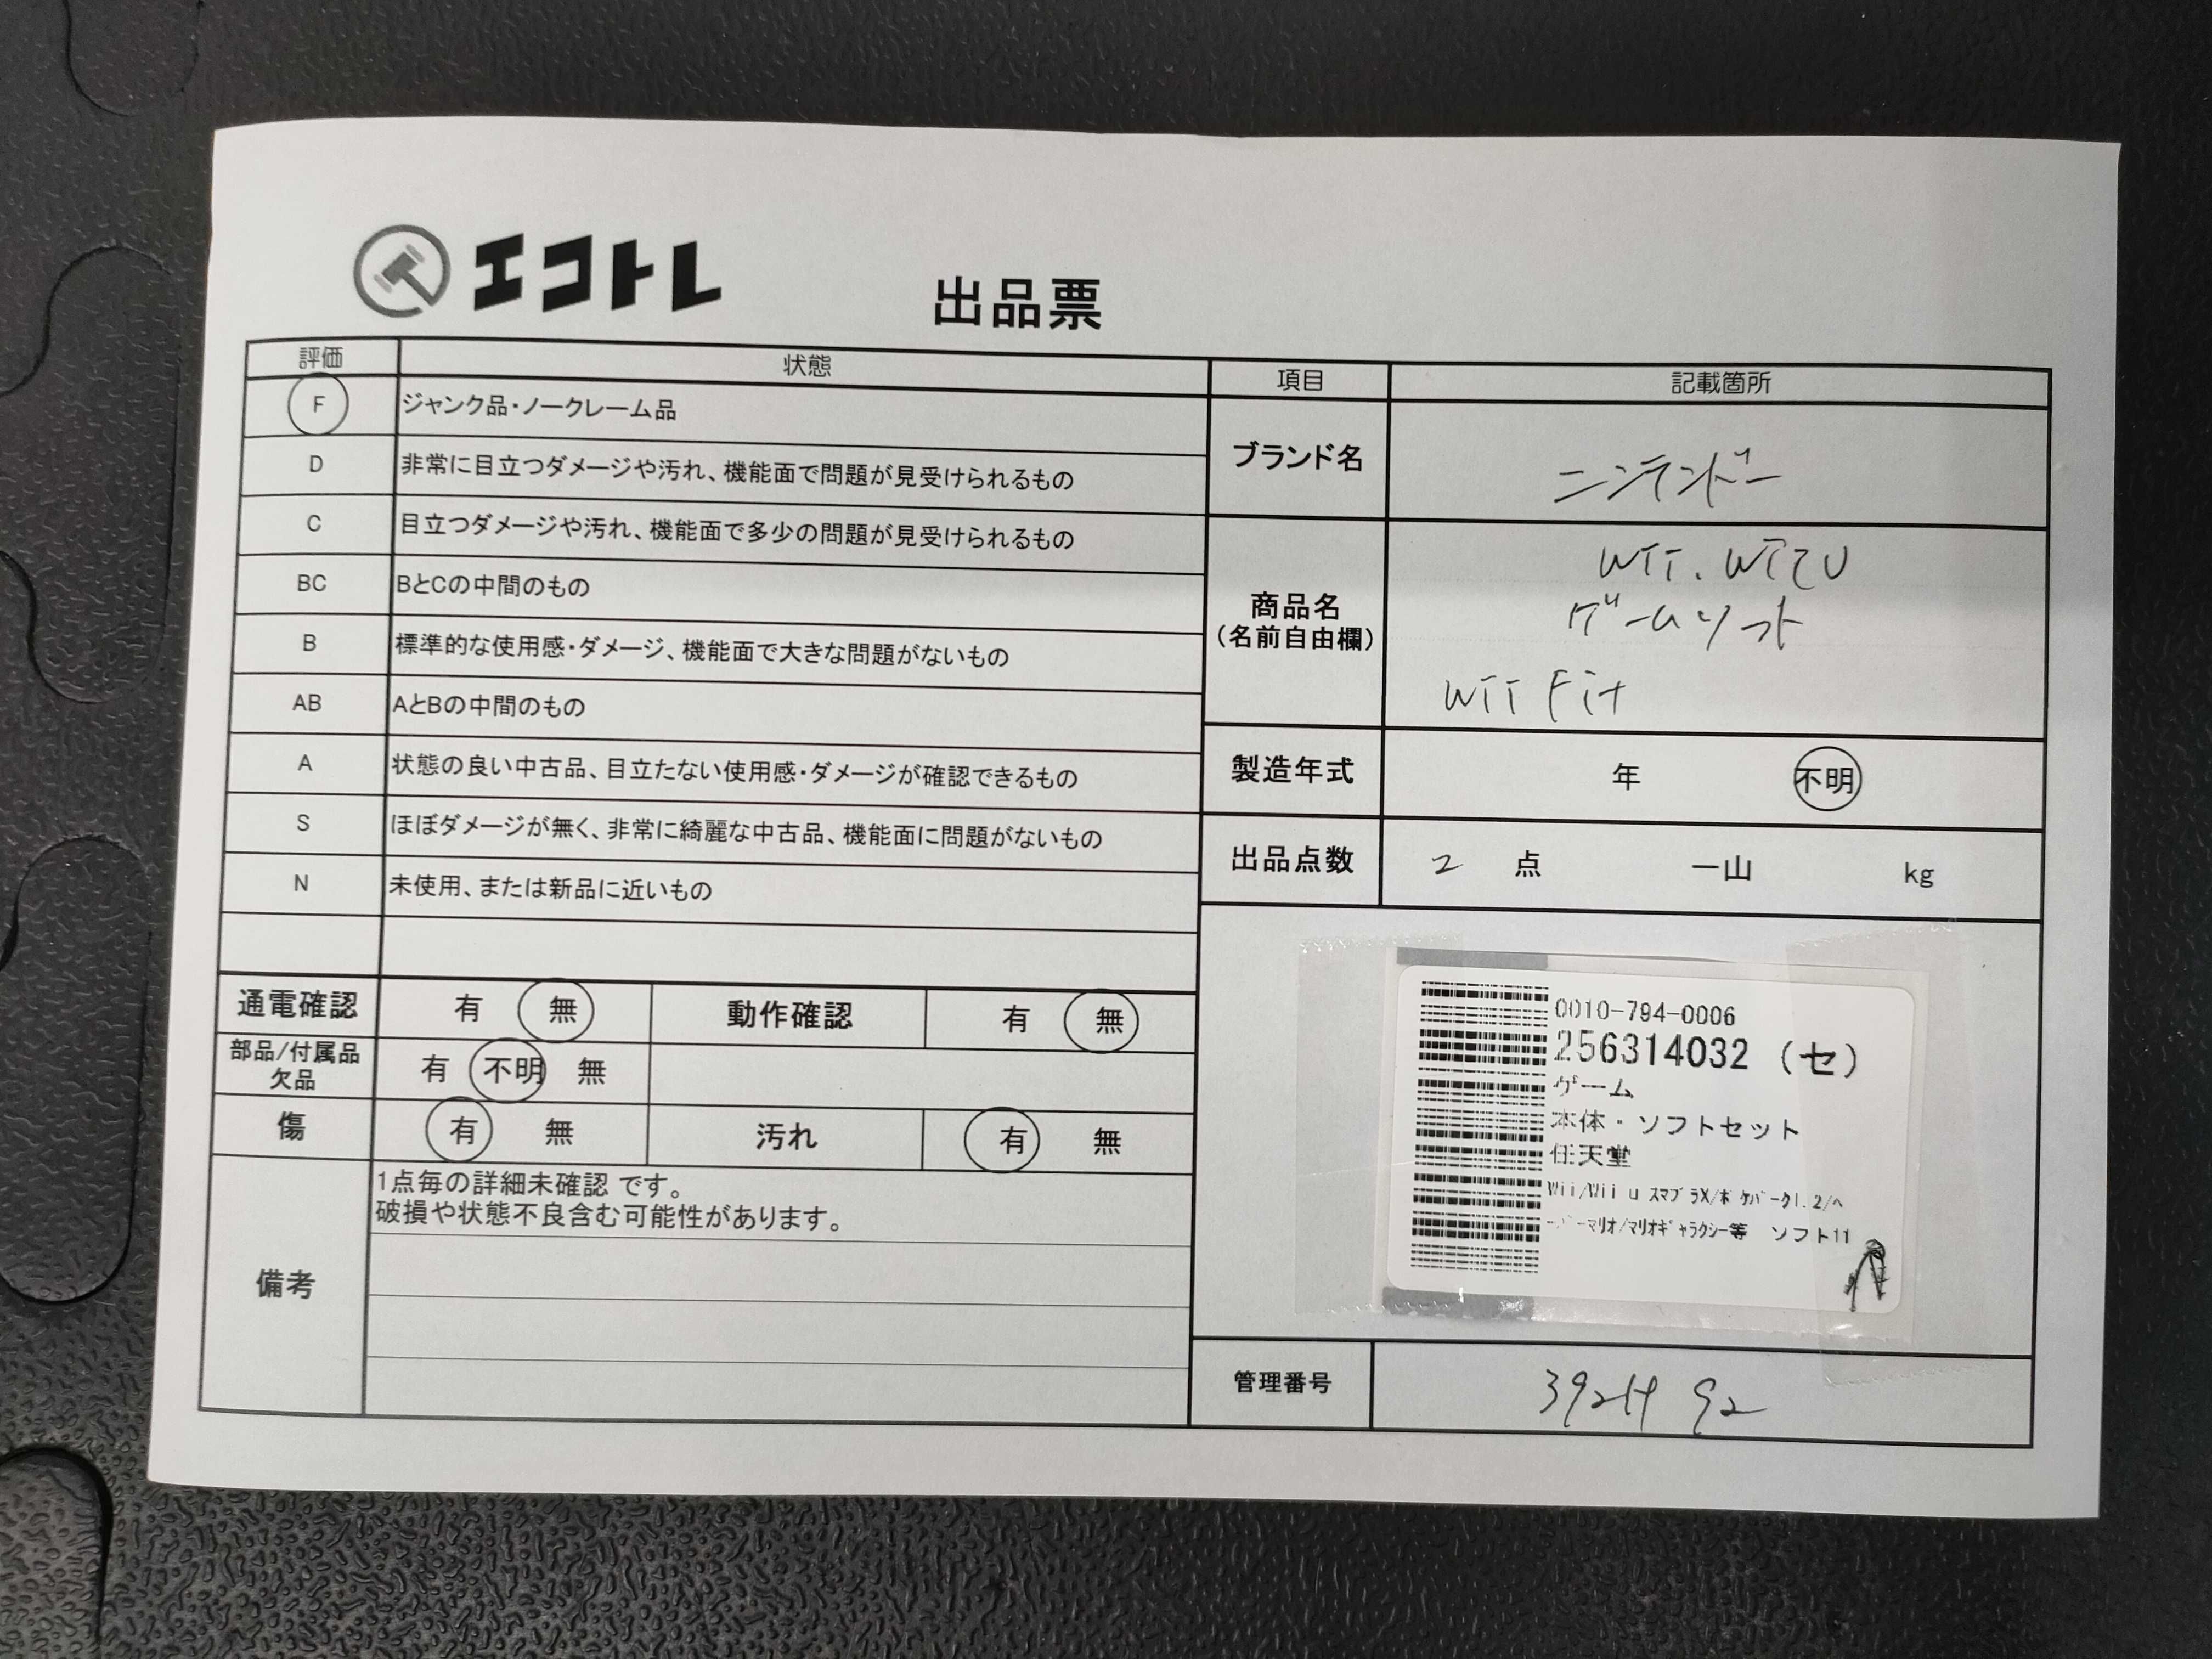 エコトレ
出品票
評価 状態
F ジャンク品・ノークレーム品
D 非常に目立つダメージや汚れ、機能面で問題が見受けられるもの
C 目立つダメージや汚れ、機能面で多少の問題が見受けられるもの
BC BとCの中間のもの
B 標準的な使用感・ダメージ、機能面で大きな問題がないもの
AB AとBの中間のもの
A 状態の良い中古品、目立たない使用感・ダメージが確認できるもの
S ほぼダメージが無く、非常に綺麗な中古品、機能面に問題がないもの
N 未使用、または新品に近いもの
通電確認 有 無 動作確認 有 無
部品/付属品欠品 有 不明 無
傷 有 無 汚れ 有 無
備考
1点毎の詳細未確認 です。
破損や状態不良含む可能性があります。
項目 記載箇所
ブランド名 ニンテンドー
商品名
(名前自由欄)
Wii. Wii U
ゲームソフト
Wii Fit
製造年式 年 不明
出品点数 2 点 一山 kg
0010-794-0006
256314032 (セ)
ゲーム
本体・ソフトセット
任天堂
Wii/Wii u スマブラX/ポケパーク1.2/ペ
ーパーマリオ/マリオギャラクシー等 ソフト11
管理番号